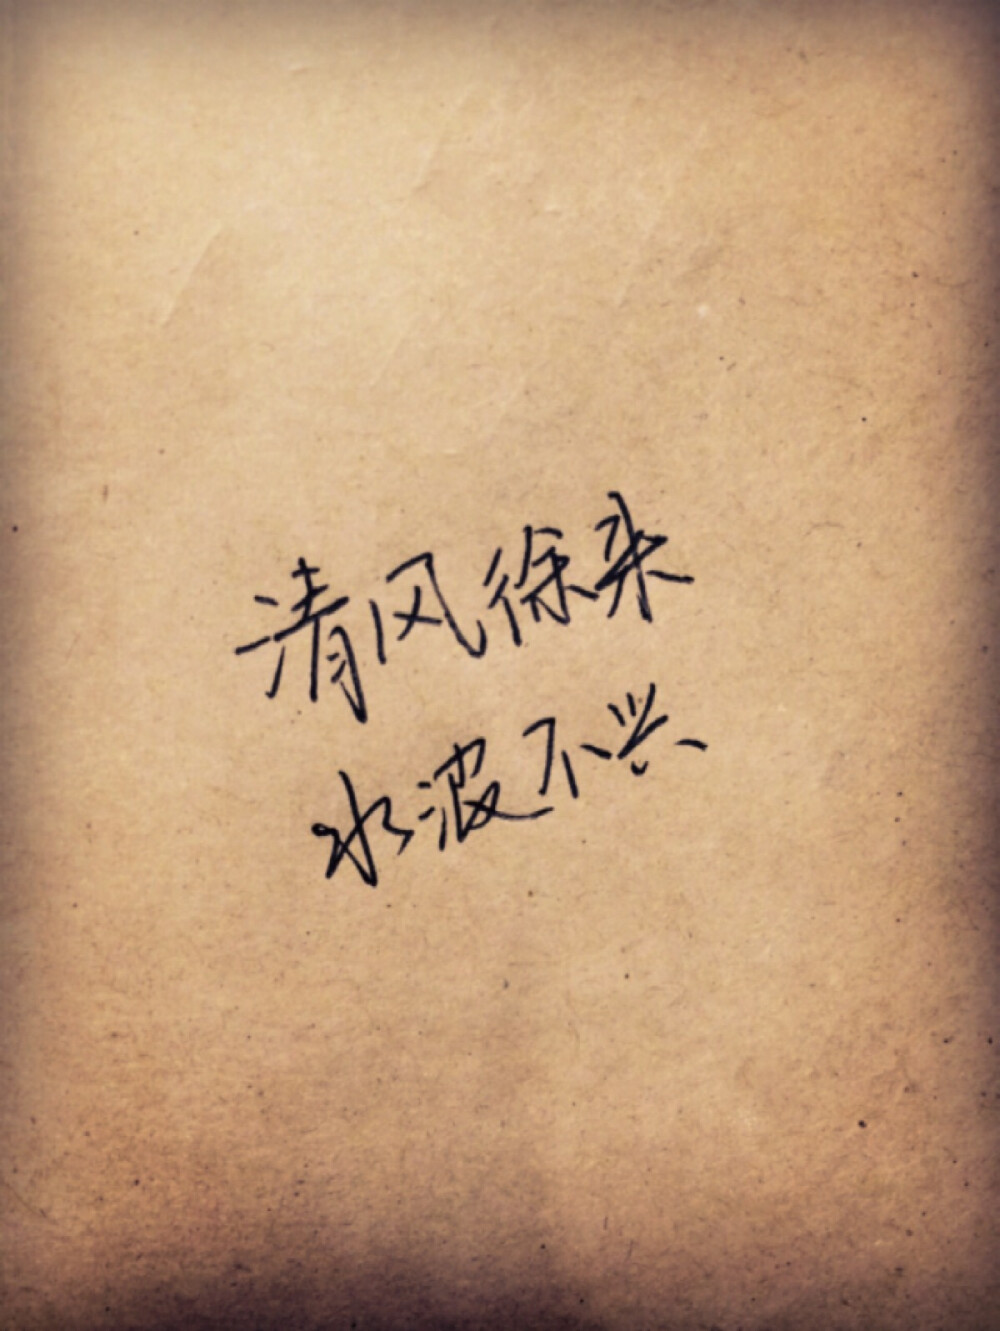 清风徐来
水波不兴